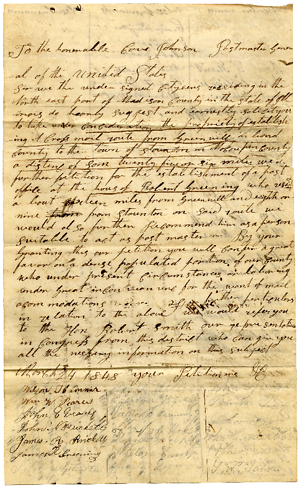 To the honourable Cave Johnson Postmaster Gener
al of the United States
Sir we the under signed Citizens residing in the
North east part of Madison County in the State of Illi
nois do humbly suggest and earnestly solicit you
to take into consideration the propriety of establish
ing a Cross mail route from Greenville in Bond
County to the town of Staunton in Macoupin County
a distance of some twenty five or six miles we do
further petition for the establishment of a post
office at the house of Robert Greening who resides
about sixteen miles from Greenville and eight or
nine from Staunton on said route we
would also further Recommend him as a person
suitable to act as post master in By your
granting this our petition you will confer a great
favour on a dense populated portion of our County
who under present circumstances are laboring
under great inconvenience for the want of mail
acomodations If further particulars
in relation to the above we would refer you
to the Hon Robert Smith our representative
in Congress from this district who can give you
all the necessary information on this subject
1848 your Petitioners &c
Wm
John C Graves
John
James
James Greening